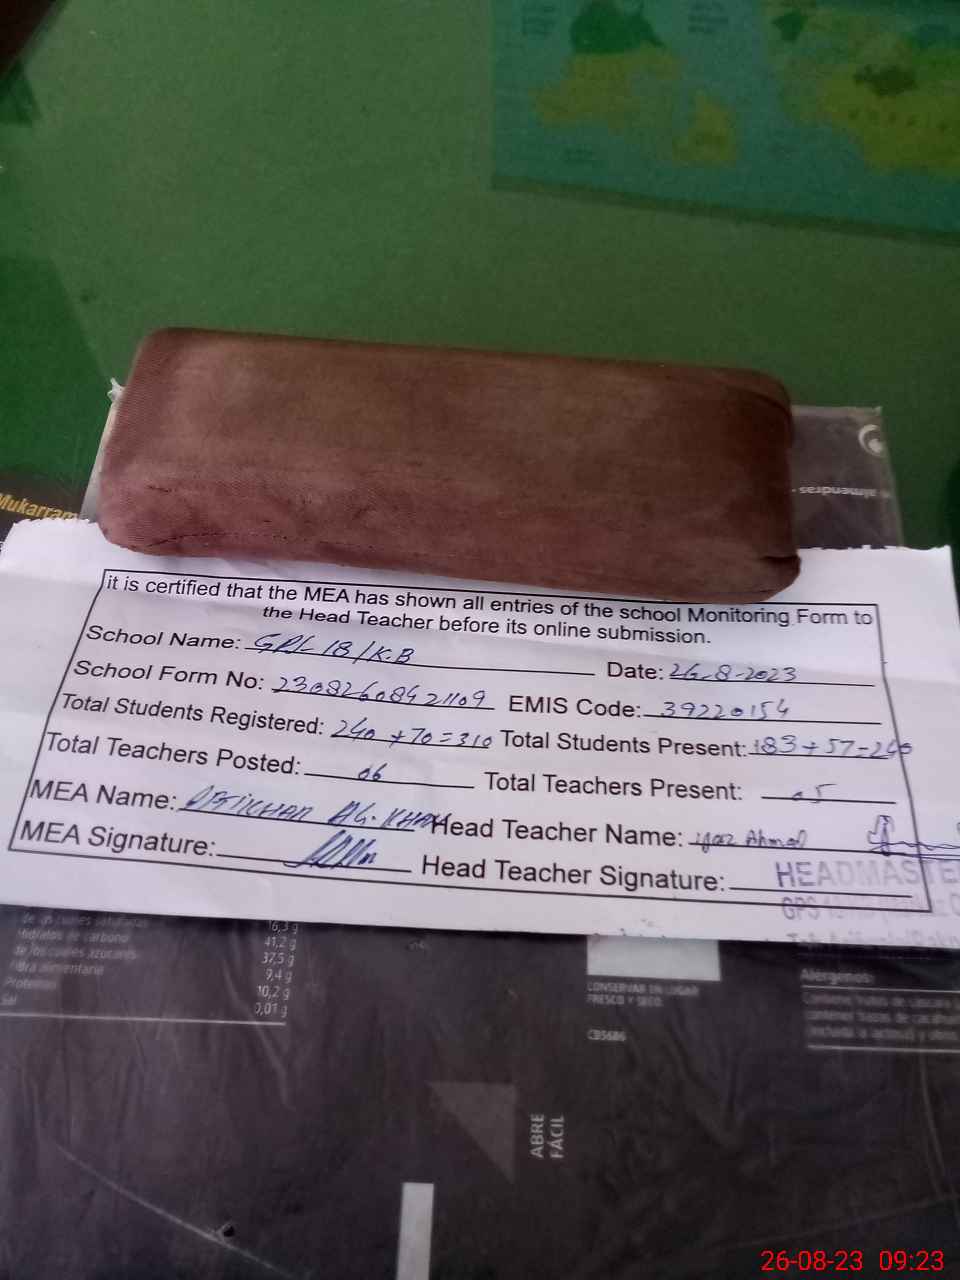 Mukarram
almendras
it is certified that the MEA has shown all entries of the school Monitoring Form to
the Head Teacher before its online submission.
School Name: GPS 18/K.B Date: 26-8-2023
School Form No: 23082608421109 EMIS Code: 39220154
Total Students Registered: 240 + 70 = 310 Total Students Present: 183 + 57 - 240
Total Teachers Posted: 06 Total Teachers Present: 05
MEA Name: KHAN Head Teacher Name: Ahmad
MEA Signature: Head Teacher Signature:
HEADMASTE
GPS
16,3 g
hidratos de carbono 41,2 g
de los cuales azúcares 37,5 g
fibra alimentaria 9,4 g
Proteínas 10,2 g
Sal 0,01 g
CONSERVAR EN LUGAR
FRESCO Y SECO.
CB5686
Alérgenos:
ABRE
FÁCIL
26-08-23 09:23